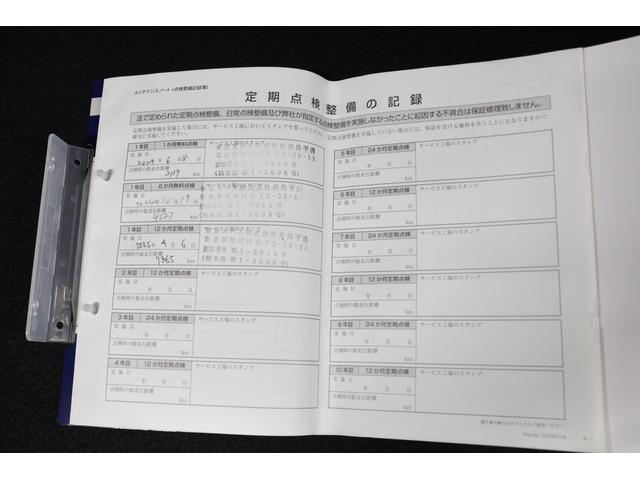 メンテナンスノート(点検整備記録簿)
定期点検整備の記録
法で定められた定期点検整備、日常点検整備及び弊社が指定する点検整備を実施しなかったことに起因する不具合は保証修理致しません。
定期点検整備を実施した場合には、サービス工場においてスタンプを貰ってください。
確実に実施してください。
定期点検整備を実施していない場合には、保証を受ける権利を失うことにもなりますので、
1年目 1か月無料点検 サービス工場のスタンプ
実施日
2024年 6月 8日
点検時の総走行距離
km
1年目 6か月無料点検
実施日
月19日
点検時の総走行距離
4227 km
1年目 12か月定期点検
実施日
2025年 4月 6日
点検時の総走行距離
7365 km
2年目 12か月定期点検 サービス工場のスタンプ
実施日
年 月 日
点検時の総走行距離
km
3年目 24か月定期点検 サービス工場のスタンプ
実施日
年 月 日
点検時の総走行距離
km
4年目 12か月定期点検 サービス工場のスタンプ
実施日
年 月 日
点検時の総走行距離
km
5年目 24か月定期点検 サービス工場のスタンプ
実施日
年 月 日
点検時の総走行距離
km
6年目 12か月定期点検 サービス工場のスタンプ
実施日
年 月 日
点検時の総走行距離
km
7年目 24か月定期点検 サービス工場のスタンプ
実施日
年 月 日
点検時の総走行距離
km
8年目 12か月定期点検 サービス工場のスタンプ
実施日
年 月 日
点検時の総走行距離
km
9年目 24か月定期点検 サービス工場のスタンプ
実施日
年 月 日
点検時の総走行距離
km
10年目 12か月定期点検 サービス工場のスタンプ
実施日
年 月 日
点検時の総走行距離
km